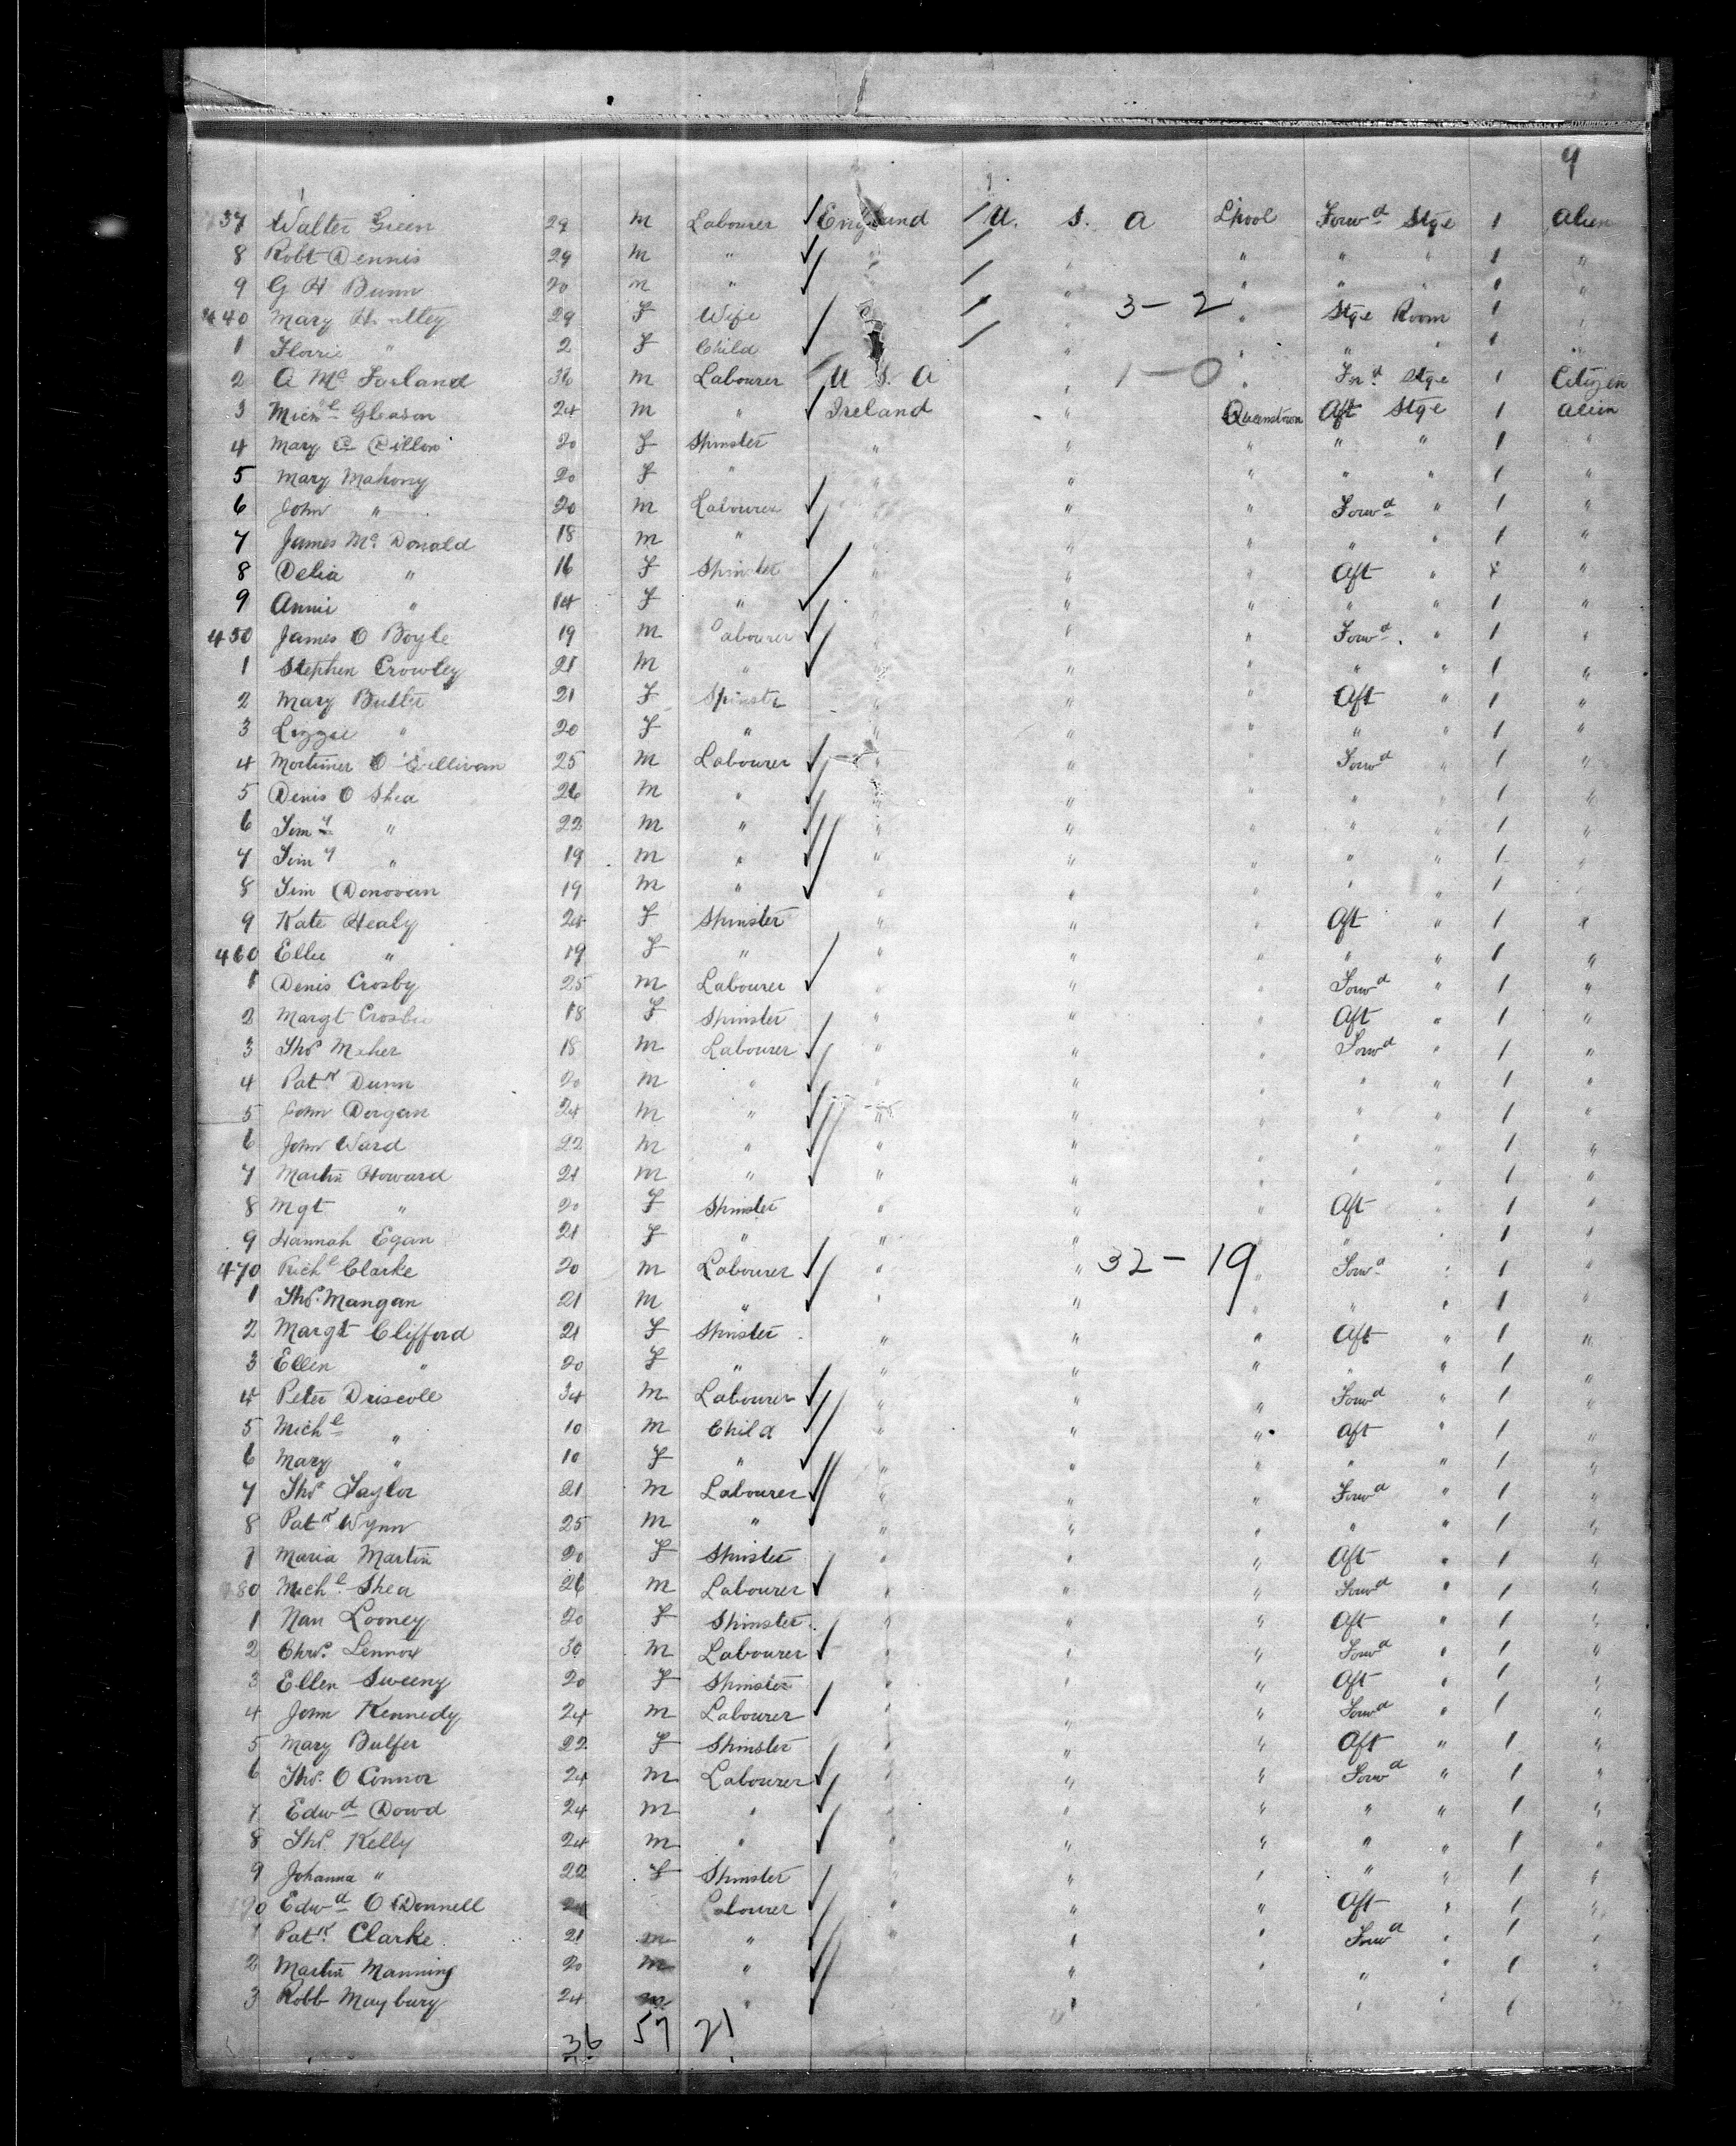 9
437 Walter Green 29 m Labourer England U. S. A L'pool Forwd Stge 1 Alien
8 Robt Dennis 29 m " " " " " " 1 "
9 G H Bunn 20 m " " " " " " 1 "
3 - 2
440 Mary 29 F Wife " " Stge Room 1 "
1 Florrie " 2 F Child " " " " 1 "
2 A Mc Farland 36 m Labourer U S. A " 1 - 0 " Ford Stge 1 Citizen
3 Michl Gleason 24 m " Ireland " Queenstown Aft Stge 1 Alien
4 Mary 20 F Spinster " " " " " 1 "
5 Mary Mahony 20 F " " " " " " 1 "
6 John " 20 m Labourer " " " Forwd " 1 "
7 James Mc Donald 18 m " " " " " " 1 "
8 Delia " 16 F Spinster " " " Aft " "
9 Annie " 14 F " " " " " " 1 "
450 James O Boyle 19 m Labourer " " " Forwd " 1 "
1 Stephen Crowley 21 m " " " " " " 1 "
2 Mary Butler 21 F Spinstr " " " Aft " 1 "
3 Lizzie " 20 F " " " " " " 1 "
4 Mortimer O Sullivan 25 m Labourer " " " Forwd " 1 "
5 Denis O Shea 26 m " " " " " " 1 "
6 Timy " 22 m " " " " " " 1 "
7 Timy " 19 m " " " " " " 1 "
8 Tim Donovan 19 m " " " " " " 1 "
9 Kate Healy 24 F Spinster " " " Aft " 1 "
460 Ellie " 19 F " " " " " " 1 "
1 Denis Crosby 25 m Labourer " " " Forwd " 1 "
2 Margt Crosbie 18 F Spinster " " " Aft " 1 "
3 Thos Meher 18 m Labourer " " " Forwd " 1 "
4 Patk Dunn 20 m " " " " " " 1 "
5 John Dorgan 24 m " " " " " " 1 "
6 John Ward 22 m " " " " " " 1 "
7 Martin Howard 21 m " " " " " " 1 "
8 Mgt " 20 F Spinster " " " Aft " 1 "
9 Hannah Egan 21 F " " " " " " 1 "
470 Richd Clarke 20 m Labourer " " 32 - 19 " Forwd " 1 "
1 Thos. Mangan 21 m " " " " " " 1 "
2 Margt Clifford 21 F Spinster " " " Aft " 1 "
3 Ellen " 20 F " " " " " " 1 "
4 Peter Driscoll 34 m Labourer " " " Forwd " 1 "
5 Michl " 10 m Child " " " Aft " 1 "
6 Mary " 10 F " " " " " " 1 "
7 Thos Taylor 21 m Labourer " " " Forwd " 1 "
8 Patk Wynn 25 m " " " " " " 1 "
9 Maria Martin 20 F Spinster " " " Aft " 1 "
480 Michl Shea 26 m Labourer " " " Forwd " 1 "
1 Nan Looney 20 F Spinster " " " Aft " 1 "
2 Chrs. Lennox 30 m Labourer " " " Forwd " 1 "
3 Ellen Sweeny 20 F Spinster " " " Aft " 1 "
4 John Kennedy 24 m Labourer " " " Forwd " 1 "
5 Mary Bulfer 22 F Spinster " " " Aft " 1 "
6 Thos. O Connor 24 m Labourer " " " Forwd " 1 "
7 Edwd Dowd 24 m " " " " " " 1 "
8 Thos. Kelly 24 m " " " " " " 1 "
9 Johanna " 22 F Spinster " " " " " 1 "
490 Edwd O Donnell Labourer " " " Aft " 1 "
1 Patk. Clarke 21 m " " " " Forwd " 1 "
2 Martin Manning 20 m " " " " " " 1 "
3 Robt Maybury 24 m " " " " " " 1 "
36 57 21